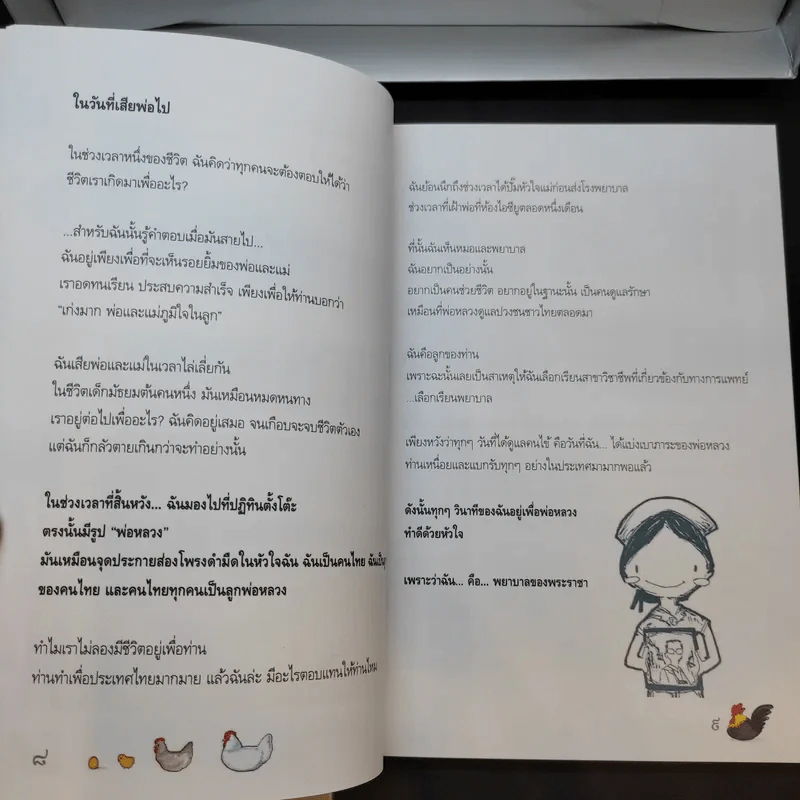 ในวันที่เสียพ่อไป
ในช่วงเวลาหนึ่งของชีวิต ฉันคิดว่าทุกคนจะต้องตอบให้ได้ว่า
ชีวิตเราเกิดมาเพื่ออะไร?
...สำหรับฉันนั้นรู้คำตอบเมื่อมันสายไป...
ฉันอยู่เพียงเพื่อที่จะเห็นรอยยิ้มของพ่อและแม่
เราอดทนเรียน ประสบความสำเร็จ เพียงเพื่อให้ท่านบอกว่า
“เก่งมาก พ่อและแม่ภูมิใจในลูก”
ฉันเสียพ่อและแม่ในเวลาไล่เลี่ยกัน
ในชีวิตเด็กมัธยมต้นคนหนึ่ง มันเหมือนหมดหนทาง
เราอยู่ต่อไปเพื่ออะไร? ฉันคิดอยู่เสมอ จนเกือบจะจบชีวิตตัวเอง
แต่ฉันก็กลัวตายเกินกว่าจะทำอย่างนั้น
ในช่วงเวลาที่สิ้นหวัง... ฉันมองไปที่ปฏิทินตั้งโต๊ะ
ตรงนั้นมีรูป “พ่อหลวง”
มันเหมือนจุดประกายส่องโพรงดำมืดในหัวใจฉัน ฉันเป็นคนไทย ฉันเป็น
ของคนไทย และคนไทยทุกคนเป็นลูกพ่อหลวง
ทำไมเราไม่ลองมีชีวิตอยู่เพื่อท่าน
ท่านทำเพื่อประเทศไทยมากมาย แล้วฉันล่ะ มีอะไรตอบแทนให้ท่านไหม
๘
ฉันย้อนนึกถึงช่วงเวลาได้ปั๊มหัวใจแม่ก่อนส่งโรงพยาบาล
ช่วงเวลาที่เฝ้าพ่อที่ห้องไอซียูตลอดหนึ่งเดือน
ที่นั้นฉันเห็นหมอและพยาบาล
ฉันอยากเป็นอย่างนั้น
อยากเป็นคนช่วยชีวิต อยากอยู่ในฐานะนั้น เป็นคนดูแลรักษา
เหมือนที่พ่อหลวงดูแลปวงชนชาวไทยตลอดมา
ฉันคือลูกของท่าน
เพราะฉะนั้นเลยเป็นสาเหตุให้ฉันเลือกเรียนสาขาวิชาชีพที่เกี่ยวข้องกับทางการแพทย์
...เลือกเรียนพยาบาล
เพียงหวังว่าทุกๆ วันที่ได้ดูแลคนไข้ คือวันที่ฉัน... ได้แบ่งเบาภาระของพ่อหลวง
ท่านเหนื่อยและแบกรับทุกๆ อย่างในประเทศมามากพอแล้ว
ดังนั้นทุกๆ วินาทีของฉันอยู่เพื่อพ่อหลวง
ทำดีด้วยหัวใจ
เพราะว่าฉัน... คือ... พยาบาลของพระราชา
๙